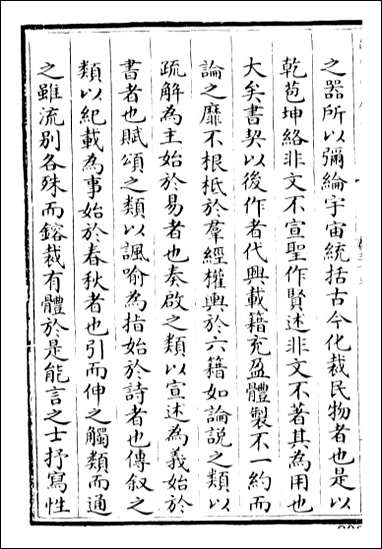 之器所以彌綸宇宙統括古今化裁民物者也是以
乾苞坤絡非文不宣聖作賢述非文不著其為用也
大矣書契以後作者代興載籍充盈體製不一約而
論之靡不根柢於羣經權輿於六籍如論說之類以
疏解為主始於易者也奏啟之類以宣述為義始於
書者也賦頌之類以諷喻為指始於詩者也傳叙之
類以紀載為事始於春秋者也引而伸之觸類而通
之雖流別各殊而鎔裁有體於是能言之士抒寫性